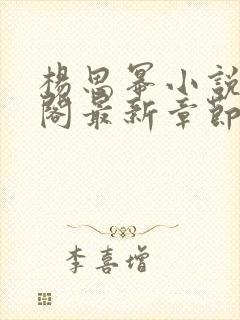 楊思冪小說
閣最新章節
李喜增